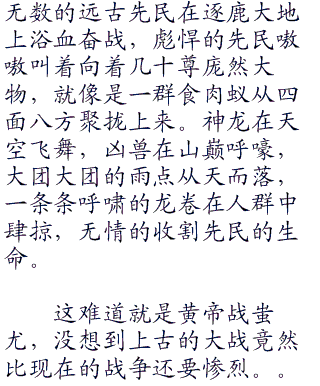 无数的远古先民在逐鹿大地
上浴血奋战，彪悍的先民嗷
嗷叫着向着几十尊庞然大
物，就像是一群食肉蚁从四
面八方聚拢上来。神龙在天
空飞舞，凶兽在山巅呼嚎，
大团大团的雨点从天而落，
一条条呼啸的龙卷在人群中
肆掠，无情的收割先民的生
命。
这难道就是黄帝战蚩
尤，没想到上古的大战竟然
比现在的战争还要惨烈。。